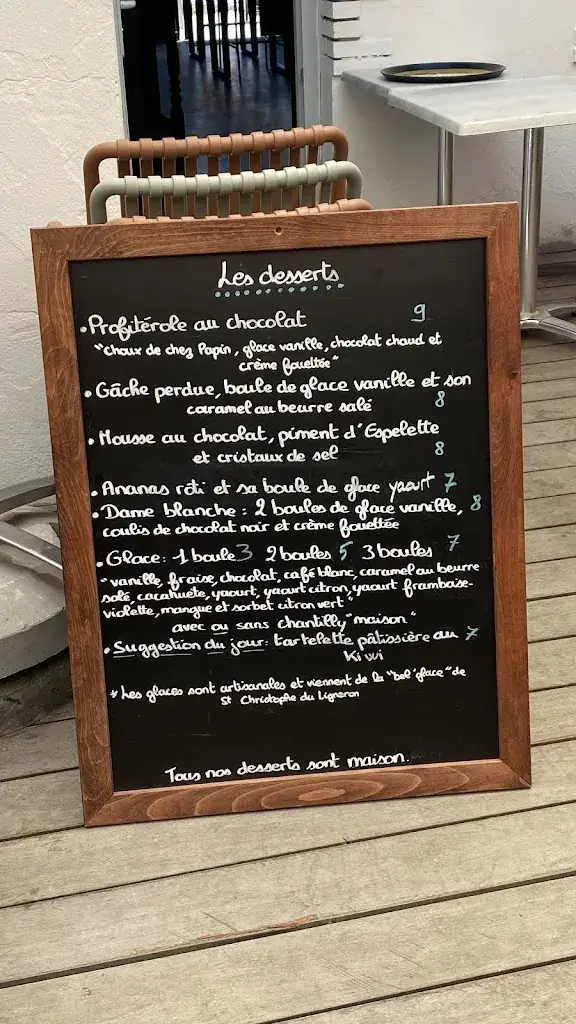 Les desserts
• Profitérole au chocolat 9
"Choux de chez Papin, glace vanille, chocolat chaud et
crème fouettée"
• Gâche perdue, boule de glace vanille et son
caramel au beurre salé 8
• Mousse au chocolat, piment d'Espelette
et cristaux de sel 8
• Ananas rôti et sa boule de glace yaourt 7
• Dame blanche : 2 boules de glace vanille, 8
coulis de chocolat noir et crème fouettée
• Glace : 1 boule 3 2 boules 5 3 boules 7
"vanille, fraise, chocolat, café blanc, caramel au beurre
salé, cacahuète, yaourt, yaourt citron, yaourt framboise-
violette, mangue et sorbet citron vert"
avec ou sans chantilly "maison"
• Suggestion du jour : tartelette pâtissière au 7
Kiwi
* Les glaces sont artisanales et viennent de la "bel'glace" de
St Christophe du Ligneron
Tous nos desserts sont maison.